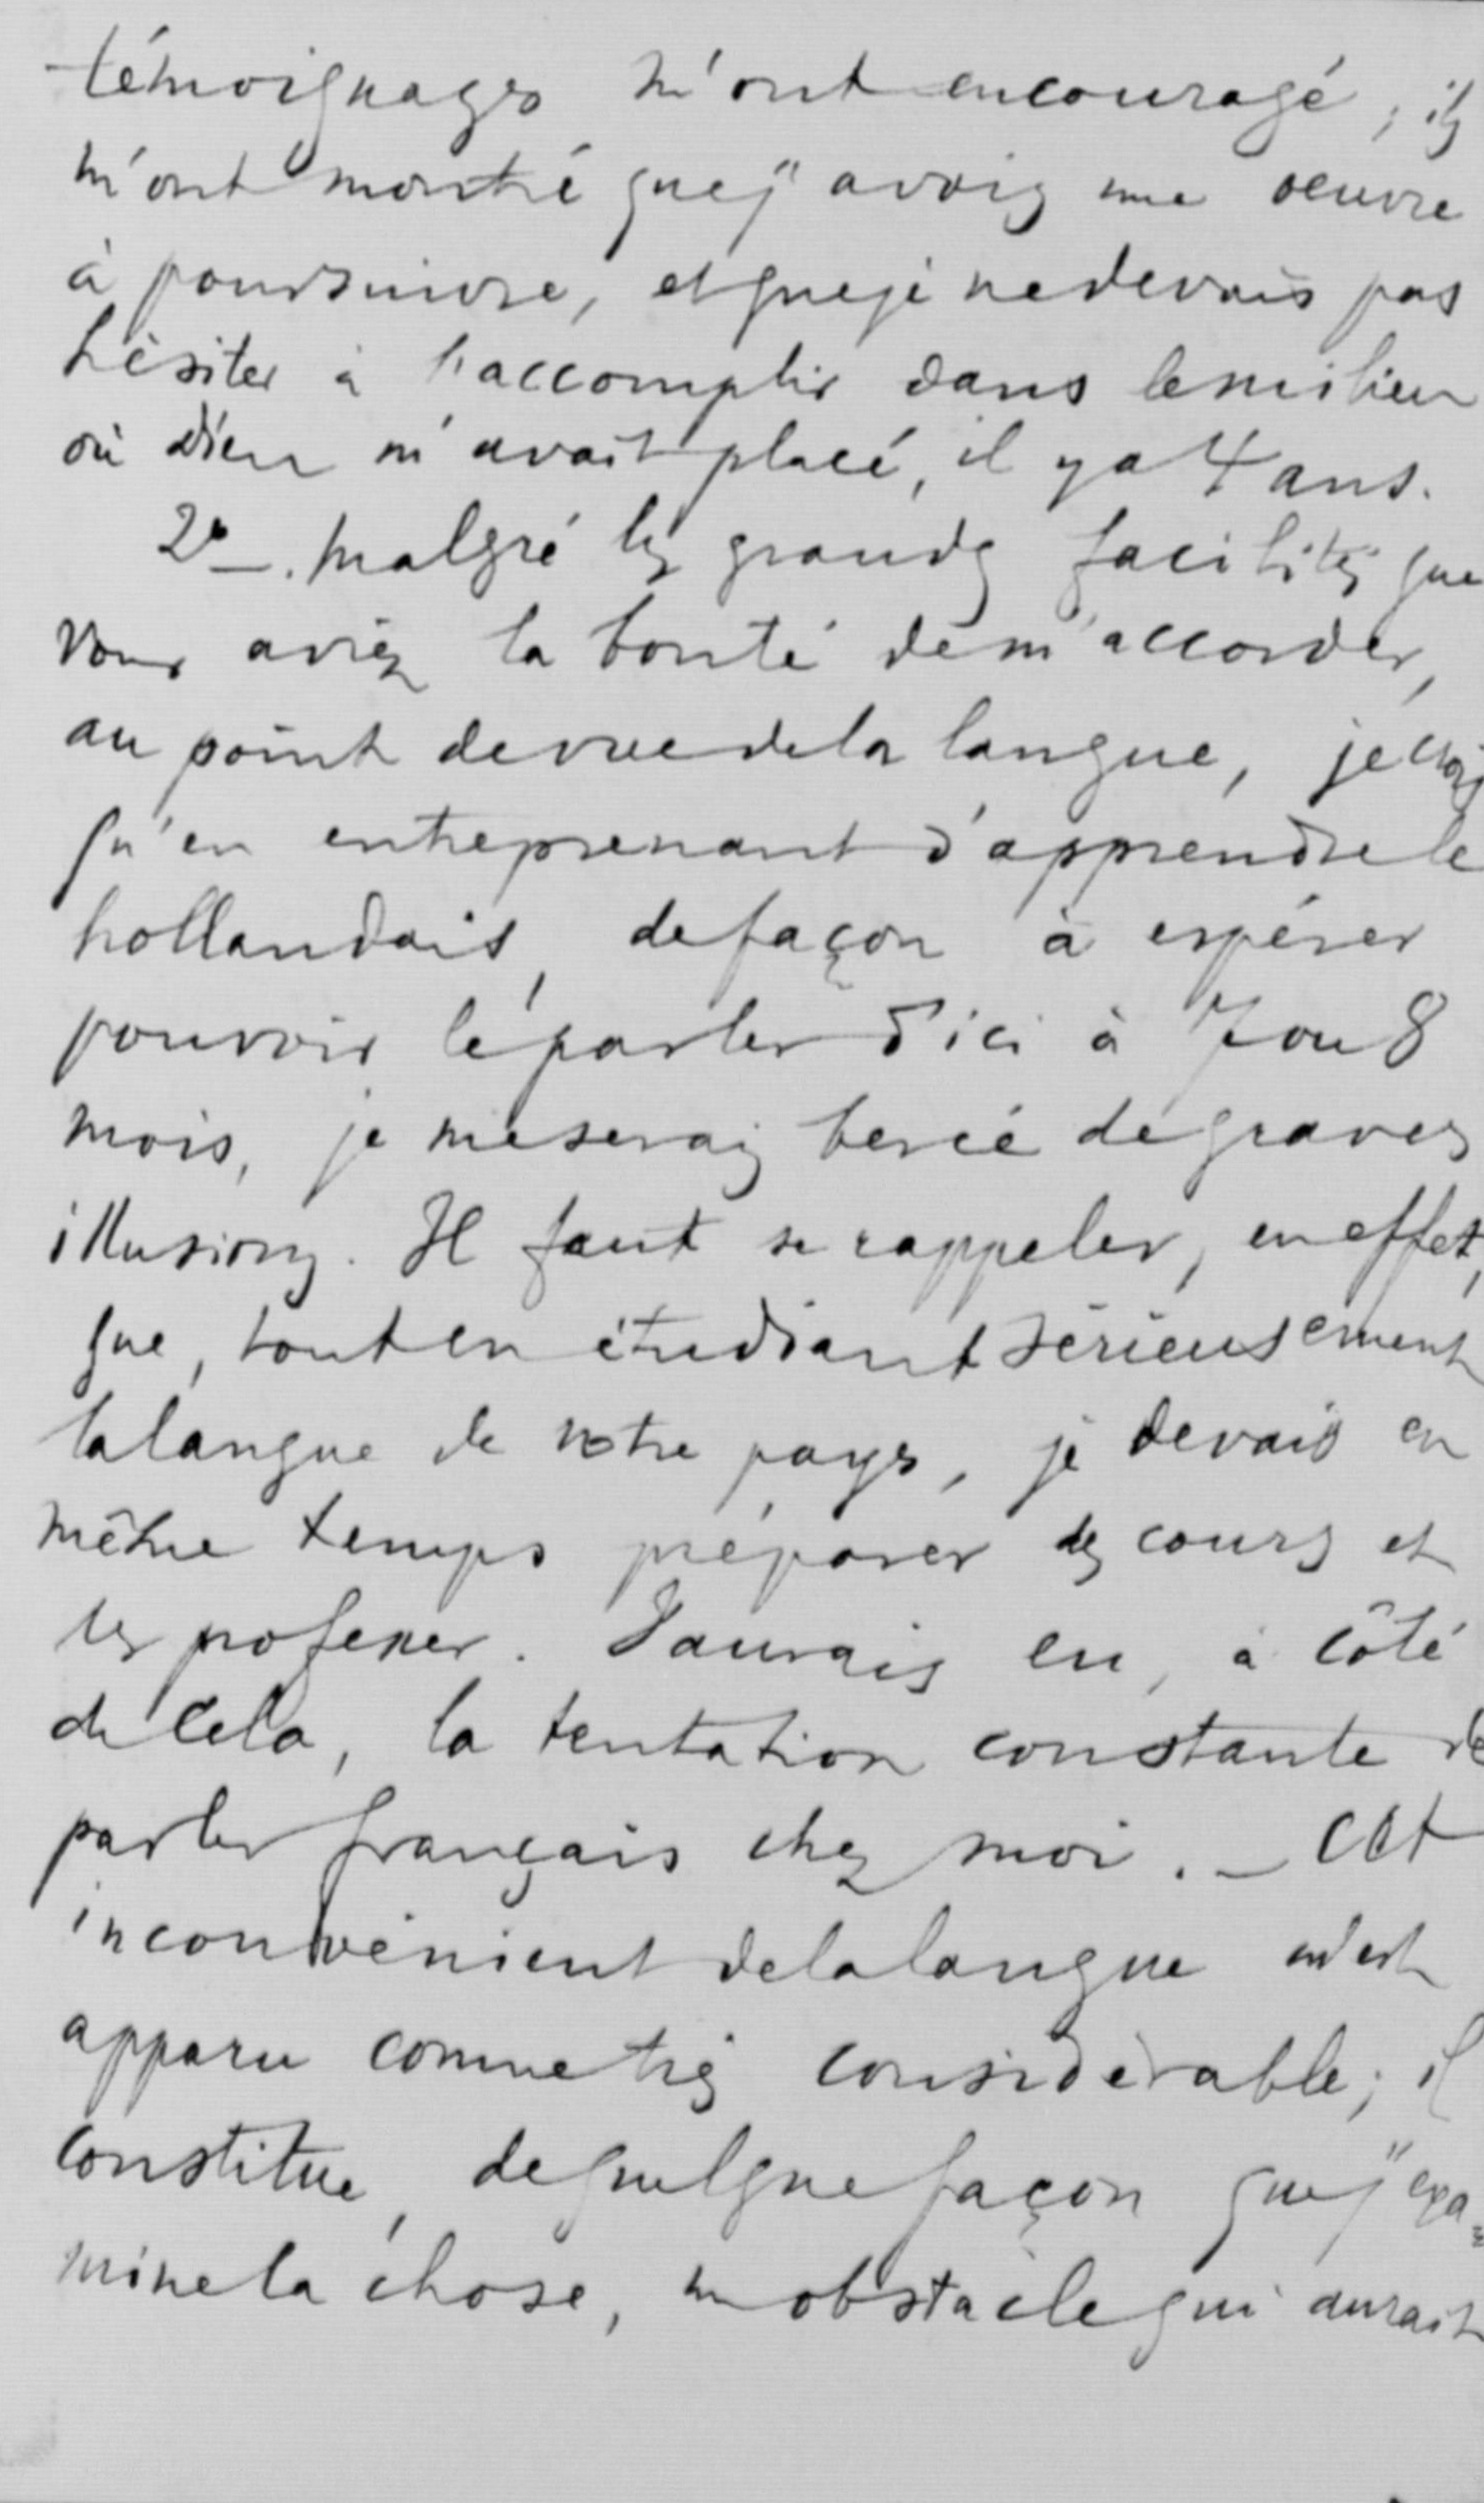 témoignages m'ont encouragé, ils
m'ont montré que j'avais une oeuvre
à poursuivre, et que je ne devais pas
hésiter à l'accomplir dans le milieu
où Dieu m'avait placé, il y a 4 ans.
2°_. Malgré les grandes facilités que
vous aviez la bonté de m'accorder,
au point de vue de la langue, je crois
qu'en entreprenant d'apprendre le
hollandais, de façon à espérer
pouvoir le parler d'ici à 7 ou 8
mois, je me serais bercé de graves
illusions. Il faut se rappeler, en effet,
que, tout en étudiant sérieusement
la langue de votre pays, je devais en
même temps préparer des cours et
les professer. J'aurais eu, à côté
de cela, la tentation constante de
parler français chez moi. _ Cet
inconvénient de la langue m'est
apparu comme très considérable; il
constitue, de quelque façon que j'exa=
mine la chose, un obstacle qui aurait